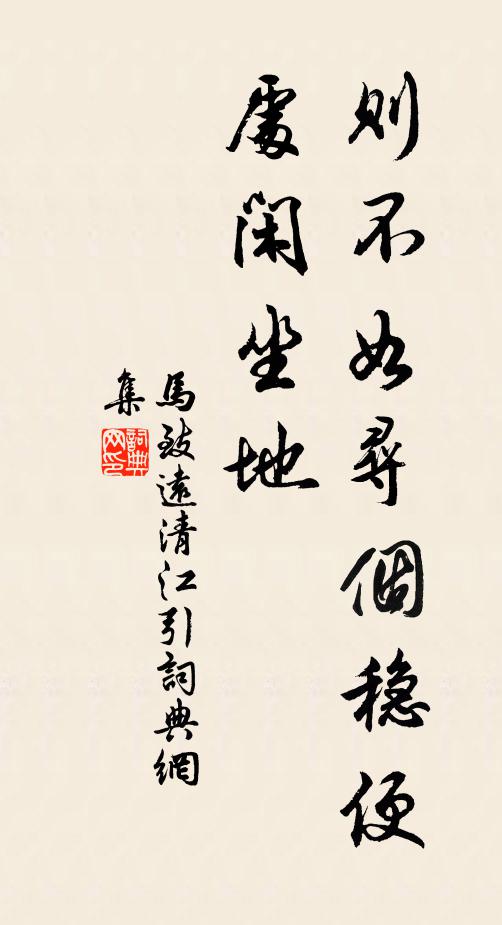 則不如尋個穏便
處闲坐地
馬致遠清江引詞典網
集
詞典网印